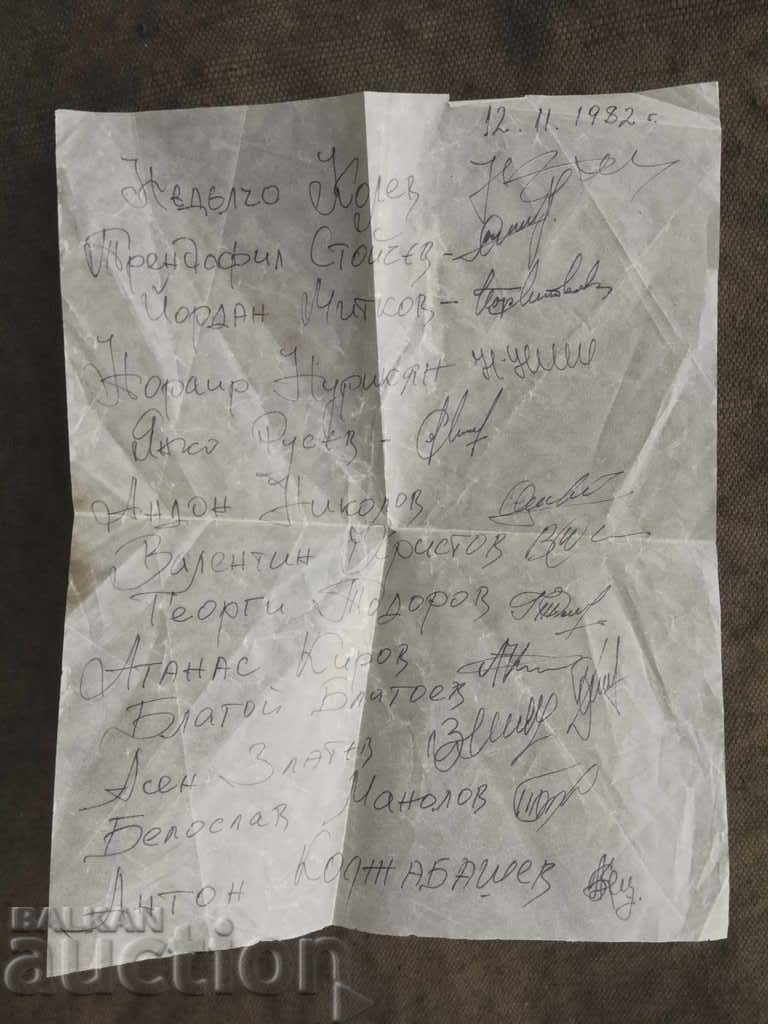 12. 11. 1982 г.
Неделчо Колев
Трендафил Стойчев -
Йордан Митков -
Нораир Нурикян
Янко Русев -
Андон Николов
Валентин Христов
Георги Тодоров
Атанас Киров
Благой Благоев
Асен Златев
Белослав Манолов
Антон Коджабашев
BALKAN
auction